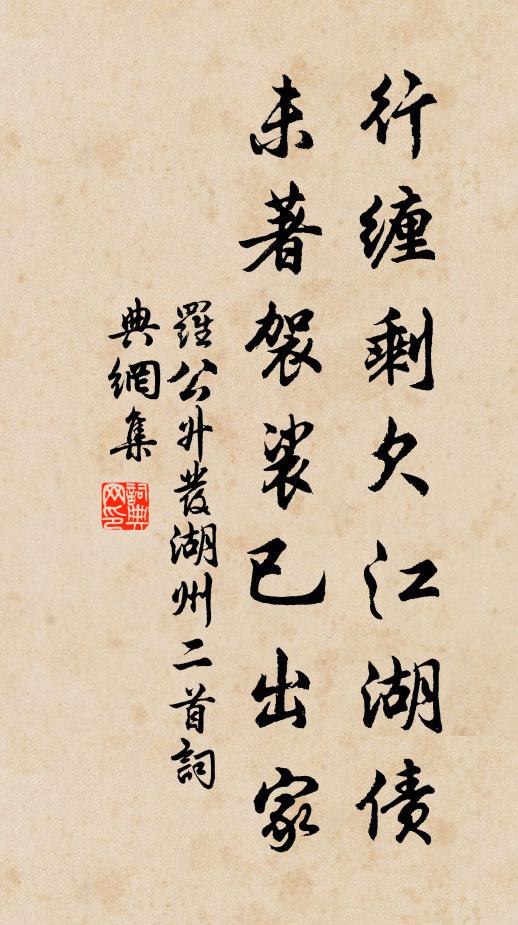 行缠剩欠江湖债
未著袈裟已出家
羅公升發湖州二首詞
典網集
詞典
网印